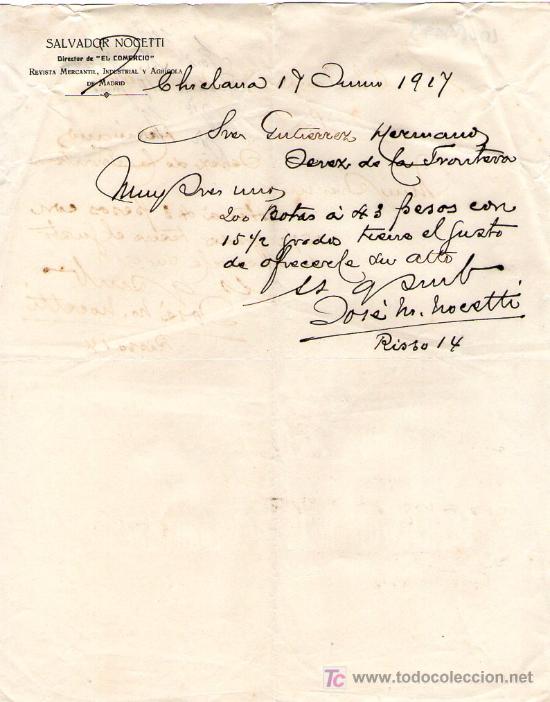 SALVADOR NOCETTI
Director de "EL COMERCIO"
REVISTA MERCANTIL, INDUSTRIAL Y AGRÍCOLA
DE MADRID
Chiclana 17 Junio 1917
Sres Gutierrez Hermanos
Jerez de la Frontera
Muy Sres mios
200 Botas á 43 pesos con
15½ grados tiene el gusto
de ofrecerle su afto
SS q s m b
José M. Nocetti
Risso 14
TC www.todocoleccion.net